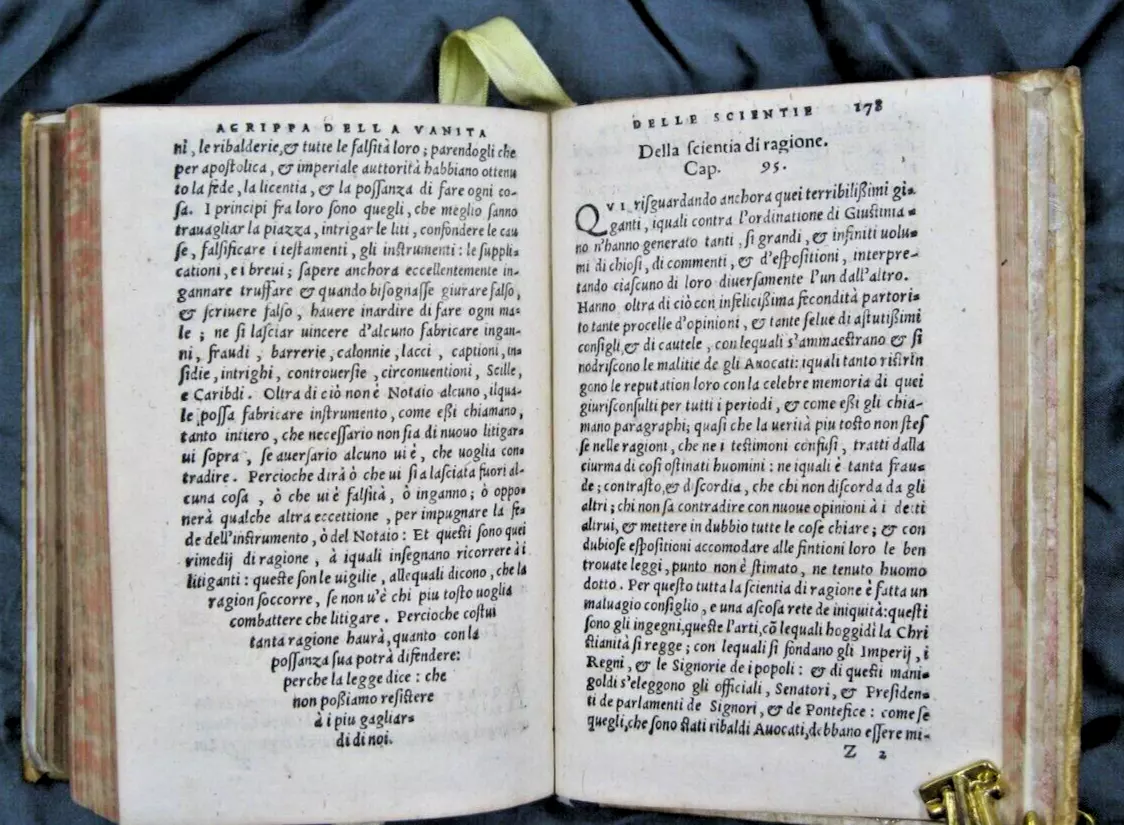 AGRIPPA DELLA VANITA
ni, le ribalderie, & tutte le falsità loro; parendogli che
per apostolica, & imperiale auttorità habbiano ottenu
to la fede, la licentia, & la possanza di fare ogni co-
sa. I principi fra loro sono quegli, che meglio sanno
trauagliar la piazza, intrigar le liti, confondere le cau
se, falsificare i testamenti, gli instrumenti: le suppli-
cationi, e i breui; sapere anchora eccellentemente in-
gannare truffare & quando bisognasse giurare falso,
& scriuere falso, hauere inardire di fare ogni ma-
le; ne si lasciar uincere d'alcuno fabricare ingan-
ni, fraudi, barrerie, calonnie, lacci, captioni, in-
sidie, intrighi, controuersie, circonuentioni, Scille,
e Caribdi. Oltra di ciò non è Notaio alcuno, ilqua-
le possa fabricare instrumento, come eßi chiamano,
tanto intiero, che necessario non sia di nuouo litigar-
ui sopra, se auersario alcuno ui è, che uoglia con-
tradire. Percioche dirà ò che ui si a lasciata fuori al-
cuna cosa, ò che ui è falsità, ò inganno; ò oppo-
nerà qualche altra eccettione, per impugnare la fe-
de dell'instrumento, ò del Notaio: Et questi sono quei
rimedij di ragione, à iquali insegnano ricorrere à i
litiganti: queste son le uigilie, allequali dicono, che la
ragion soccorre, se non u'è chi piu tosto uoglia
combattere che litigare. Percioche costui
tanta ragione haurà, quanto con la
possanza sua potrà difendere:
perche la legge dice: che
non poßiamo resistere
à i piu gagliar-
di di noi.
DELLE SCIENTIE 178
Della scientia di ragione.
Cap. 95.
QVI risguardando anchora quei terribilißimi gi-
ganti, iquali contra l'ordinatione di Giustinia-
no n'hanno generato tanti, si grandi, & infiniti uolu-
mi di chiosi, di commenti, & d'espositioni, interpre-
tando ciascuno di loro diuersamente l'un dall'altro.
Hanno oltra di ciò con infelicißima fecondità partori-
to tante procelle d'opinioni, & tante selue di astutißimi
consigli, & di cautele, con lequali s'ammaestrano & si
nodriscono le malitie de gli Auocati: iquali tanto ristrin
gono le reputation loro con la celebre memoria di quei
giurisconsulti per tutti i periodi, & come eßi gli chia-
mano paragraphi; quasi che la uerità piu tosto non stes
se nelle ragioni, che ne i testimoni confusi, tratti dalla
ciurma di cosi ostinati huomini: ne iquali è tanta frau-
de; contrasto, & discordia, che chi non discorda da gli
altri; chi non sa contradire con nuoue opinioni à i detti
altrui, & mettere in dubbio tutte le cose chiare; & con
dubiose espositioni accomodare alle fintioni loro le ben
trouate leggi, punto non è stimato, ne tenuto huomo
dotto. Per questo tutta la scientia di ragione è fatta un
maluagio consiglio, e una ascosa rete de iniquità: questi
sono gli ingegni, queste l'arti, cõ lequali hoggidì la Chri
stianità si regge; con lequali si fondano gli Imperij, i
Regni, & le Signorie de i popoli: & di questi mani-
goldi s'eleggono gli officiali, Senatori, & Presiden-
ti de parlamenti de Signori, & de Pontefice: come se
quegli, che sono stati ribaldi Auocati, debbano essere mi-
Z 2